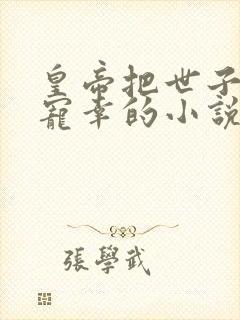 皇帝把世子
寵幸的小說
張學武